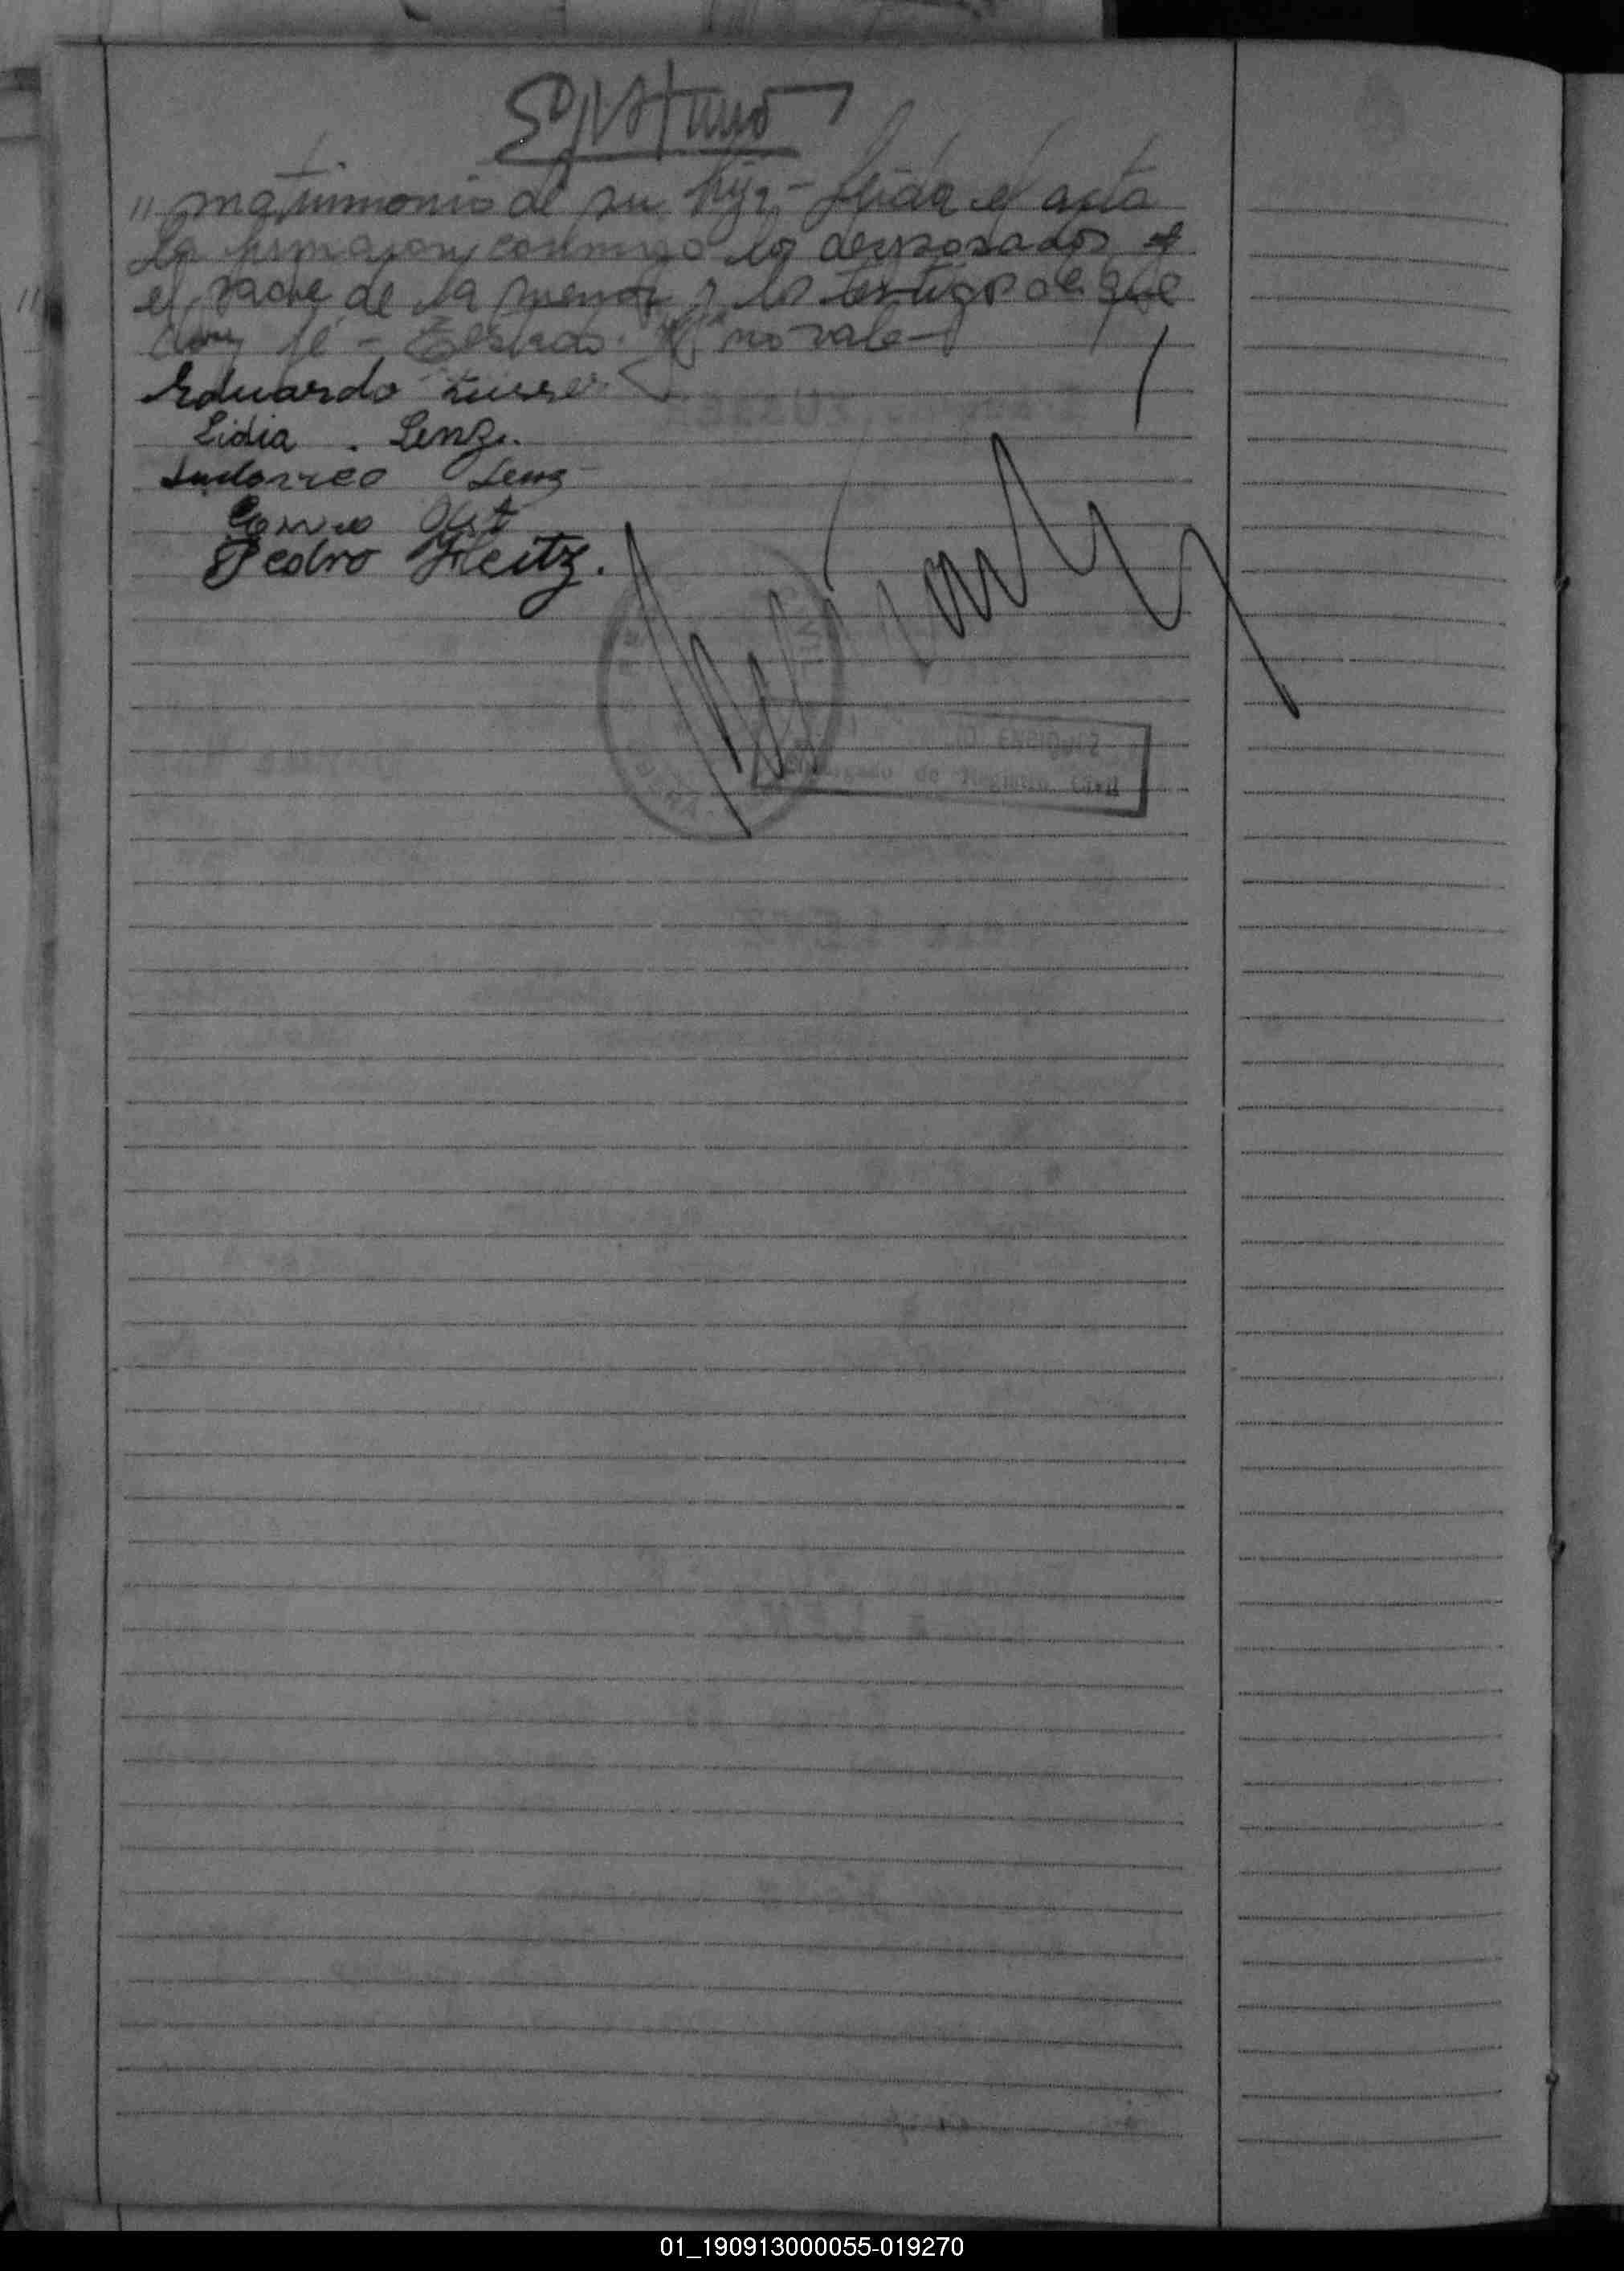 " matrimonio de su hija - leida el acta
la firmaron conmigo los desposados el
el padre de la menor y los testigos de que
doy fé - Testado: "el" no vale -
Eduardo Zusser
Lidia . Lenz.
Ludovico Lenz
Ost
Pedro Heitz.
EUGENIO
Encargado de Registro Civil
01_190913000055-019270